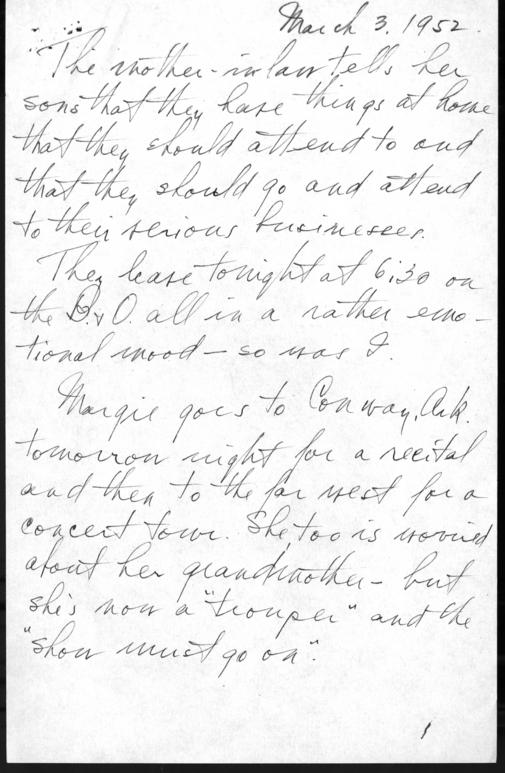 March 3, 1952.
The mother-in law tells her
sons that they have things at home
that they should attend to and
that they should go and attend
to their serious businesses.
They leave tonight at 6:30 on
the B. & O. all in a rather emo-
tional mood - so was I.
Margie goes to Conway, Ark.
tomorrow night for a recital
and then to the far west for a
concert tour. She, too is worried
about her grandmother - but
she's now a "trouper" and the
"show must go on".